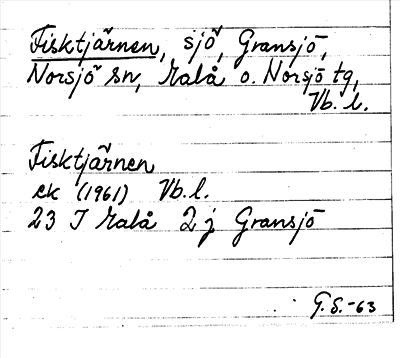 Fisktjärnen, sjö, Gransjö,
Norsjö sn, Malå o. Norsjö tg,
Vb. l.
Fisktjärnen
ek (1961) Vb. l.
23 I Malå 2 j Gransjö
G. S. -63